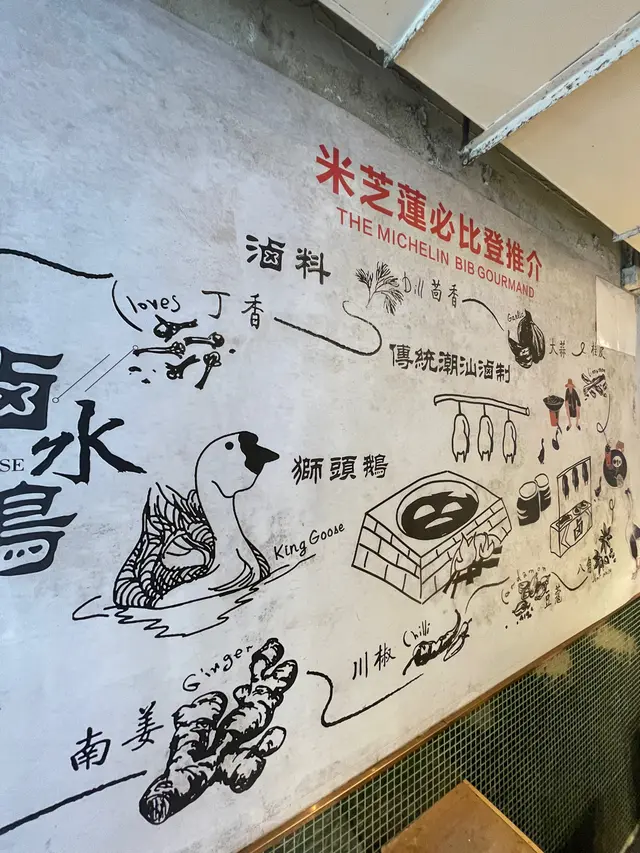 米芝蓮必比登推介
THE MICHELIN BIB GOURMAND
滷料
Dill 茴香
Cloves 丁香
Garlic
大蒜
傳統潮汕滷制
滷水
SE
獅頭鵝
King Goose
川椒 Chilli
豆蔻
八香
Ginger
南姜